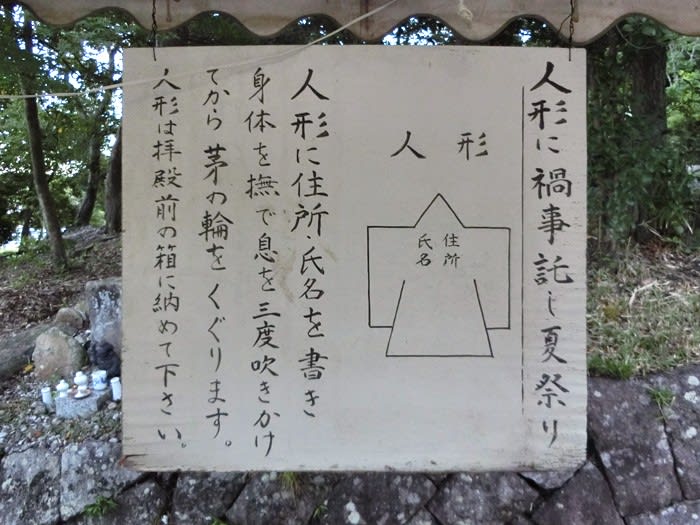 人形に禍事託し夏祭り
人形
住所
氏名
人形に住所・氏名を書き
身体を撫で息を三度吹きかけ
てから 茅の輪をくぐります。
人形は拝殿前の箱に納めて下さい。